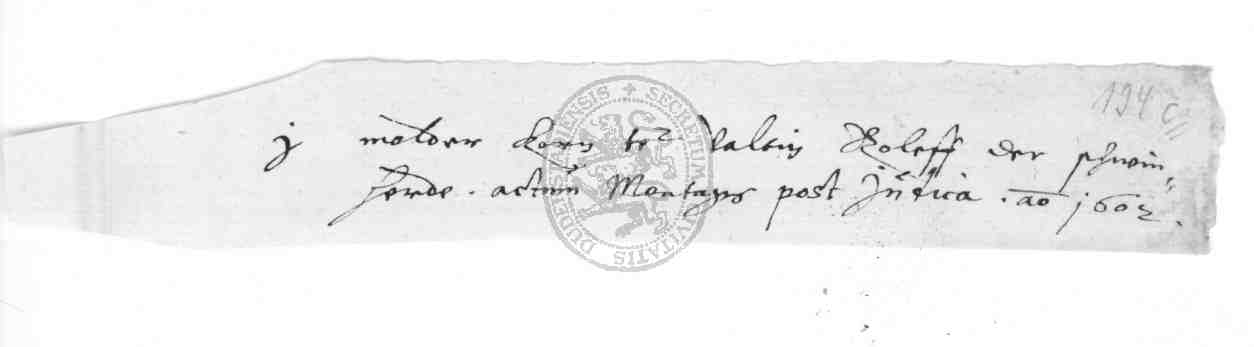 194 c
j molder korn tt Valtin Roleff der schwein„
herde . actum Montags post Judica . ao 1602 .
SECRETUM CIVITATIS DUDERSTADIENSIS